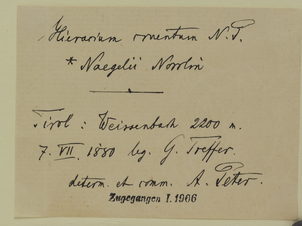 Hieracium cruentum N. P.
* Naegelii Norrlin
Tirol : Weissenbach 2200 m.
7. VII. 1880 leg. G. Treffer.
determ. et comm. A. Peter.
Zugegangen I. 1906